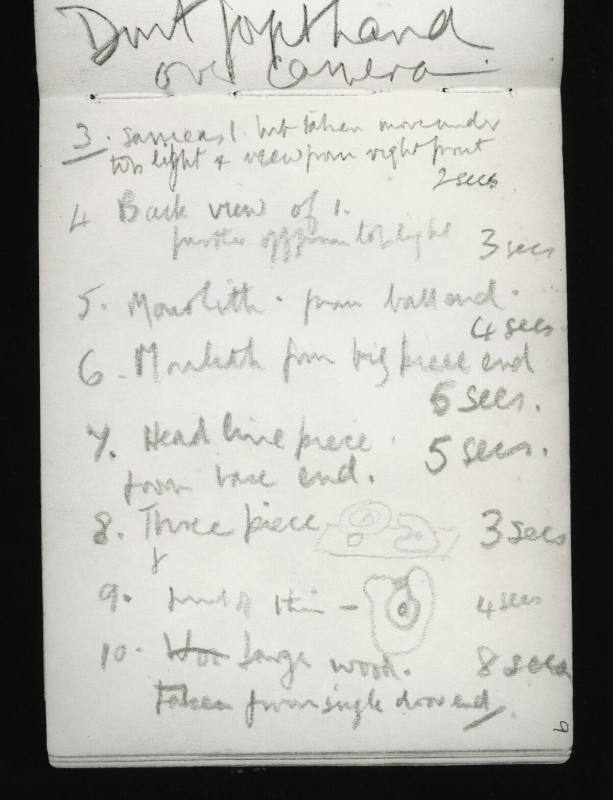 Dont put hand
over camera.
3. same as 1. but taken more under
top light & view from right front
2 secs
4 Back view of 1.
further off from top light 3 secs
5. Monolith. from ball end.
4 secs.
6. Monolith from big piece end
6 secs.
7. Head line piece.
from base end. 5 secs.
8. Three piece 3 secs
9. front of this – 4 secs
10. Large wood. 8 secs
Taken from single door end.
9